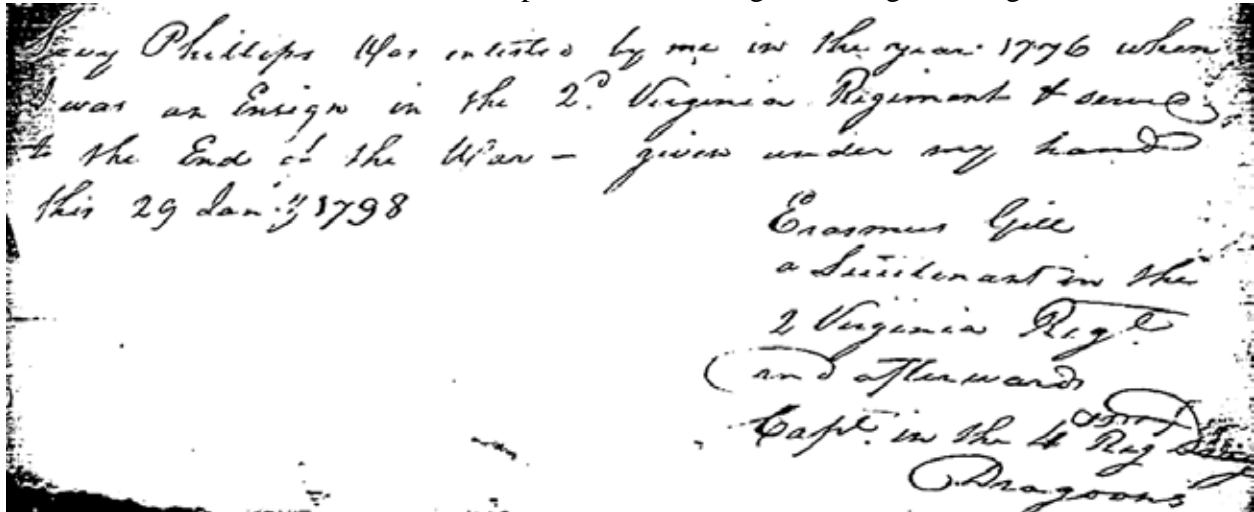 Phillips Was inlisted by me in the year 1776 when
I was an Ensign in the 2d. Virginia Regiment & serve
to the End of the War – given under my hand
this 29 Jany. 1798
Erasmus Gill
a Lieutenant in the
2 Virginia Regt
and afterwards
Capt. in the 4 Reg
Dragoons